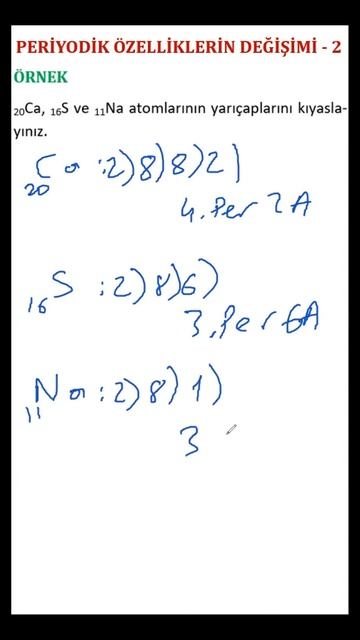 PERİYODİK ÖZELLİKLERİN DEĞİŞİMİ - 2
ÖRNEK
₂₀Ca, ₁₆S ve ₁₁Na atomlarının yarıçaplarını kıyasla-
yınız.
₂₀Ca :2)8)8)2)
4.Per 2A
₁₆S :2)8)6)
3.Per 6A
₁₁Na :2)8)1)
3